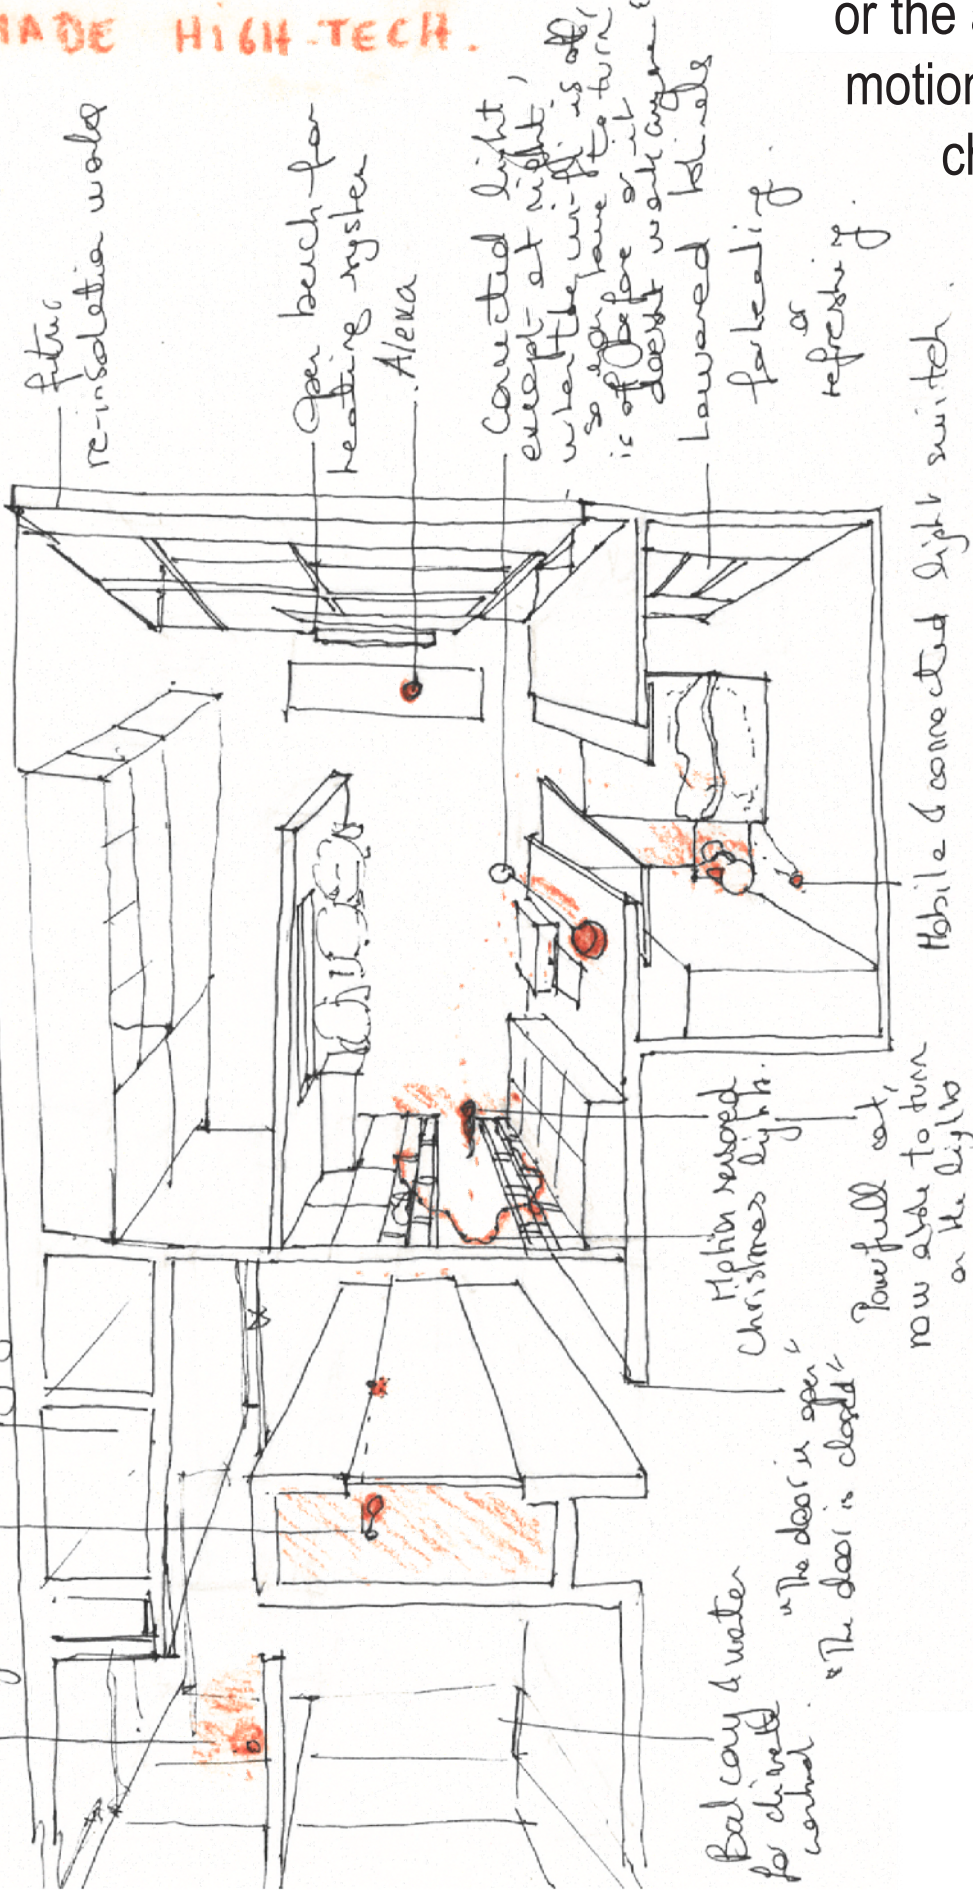 MADE HIGH-TECH.
or the
motion
ch
futur
re-insolation works
Open bench for
heating system
Alexa
Connected light
except at night,
when the wi-fi is off,
so you have to turn
is off before or it
doesn't work anymore
Lowered blinds
for heating
or
refreshing.
Mobile & connected light switch.
Motion sensored
Christmas light.
Powerfull cat,
now able to turn
on the lights
"The door is open"
"The door is closed"
Balcony & water
for climatic
control.